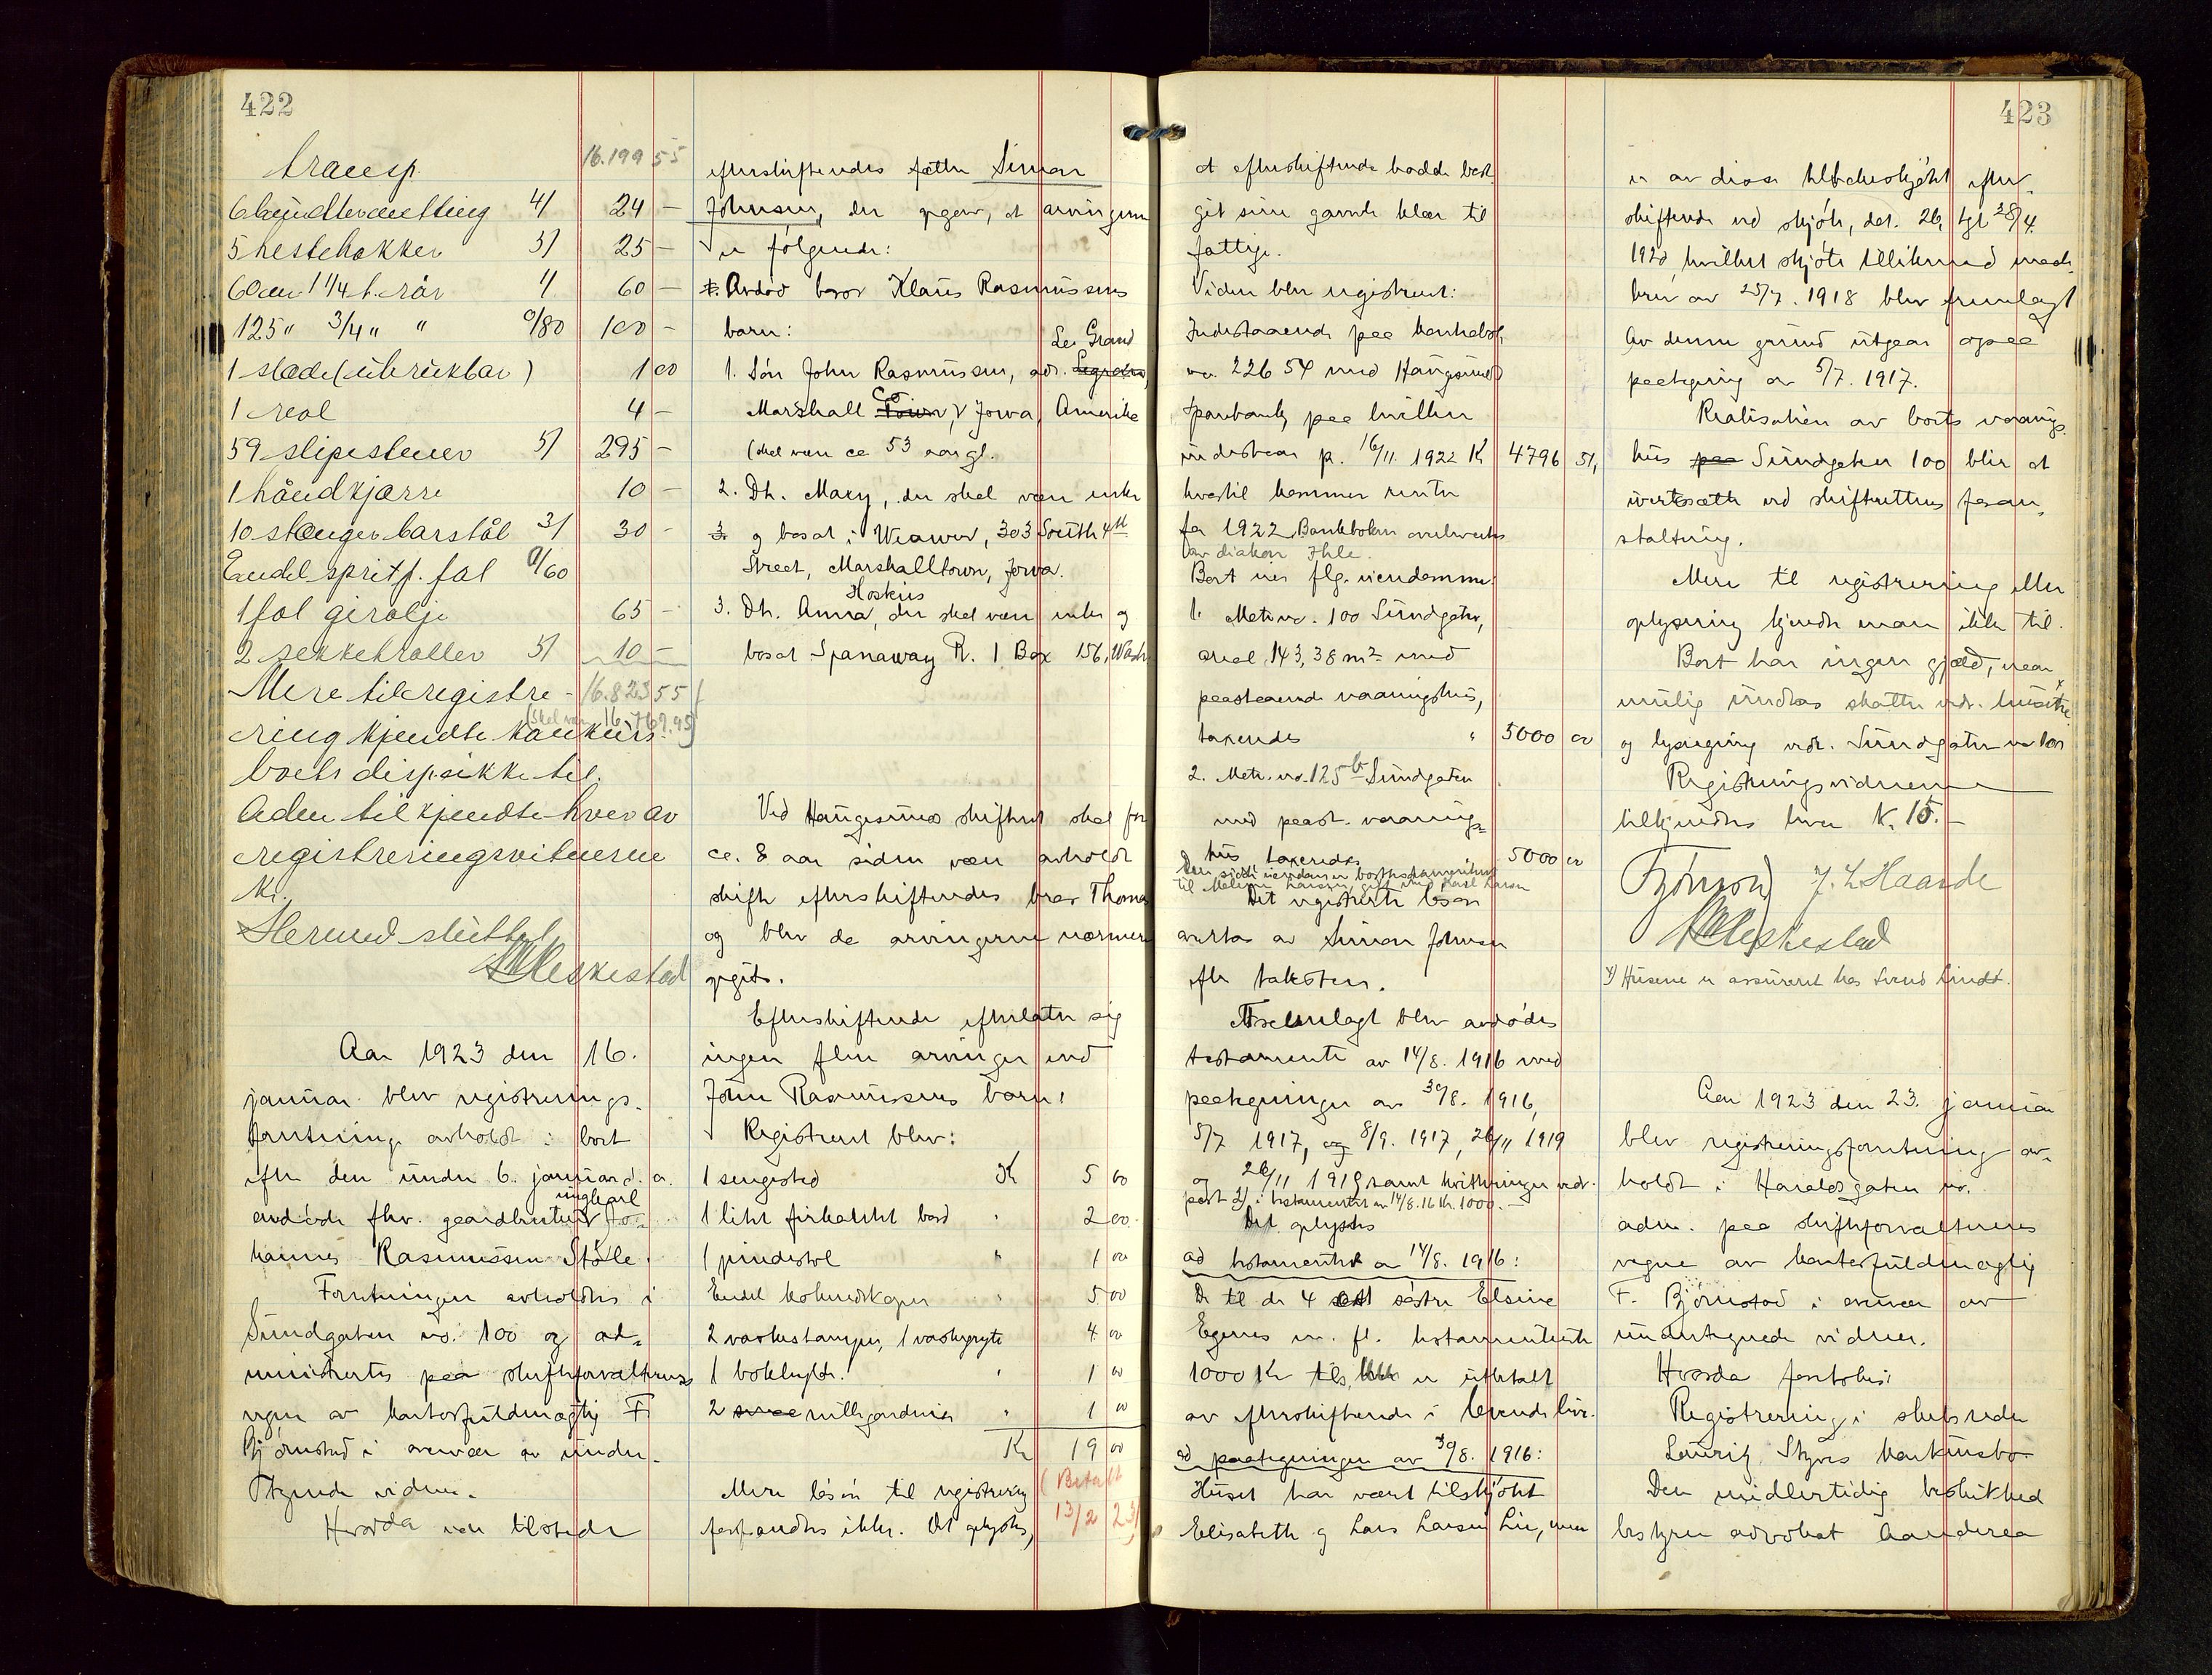 422
transp. 16.199 55
6 4/ 24 –
5 hestehakker 5/ 25 –
60 1 1/4 t. rör 1/ 60 –
125 " 3/4 " " 0/80 100 –
1 slæde (ubrukbar) 1 00
1 reol 4 –
59 slipestener 5/ 295 –
1 håndkjærre 10 –
10 stænger barstål 3/ 30 –
Endel sprit p. fat 0/60
1 fat 65 –
2 sekketraller 5/ 10 –
Mere til registre- 16.823 55
(skal være 16.767.95)
ring kjendte konkurs-
boets disp. ikke til.
tilkjendte hver av
registreringsvitnerne
kr.
Hermed sluttet
Meskestad
Aar 1923 den 16.
januar blev registrerings-
forretning avholdt i boet
efter den under 6. januar d. a.
ungkarl
avdøde fhv. gaardbruker Jo-
hannes Rasmussen Støle.
Forretningen avholdtes i
Sundgaten no. 100 og ad-
ministrertes paa skifteforvalterens
vegne av kontorfuldmægtig F.
Bjørnstad i overvær av under-
tegnede vidner.
Hvorda var tilstede
efterskiftendes fætter Simon
Johnsen, der opgav, at arvingerne
er følgende:
Avdød bror Klaus Rasmussens
barn:
Le Grand
1. Søn John Rasmussen, adr. Legrand,
Marshall Co Town, Jowa, Amerika
(skal være ca. 53 aar gl.
2. Dt. Mary, der skal være enke
3. og bosat i Weaver, 303 South 4th
Street, Marshalltown, Jowa.
Hoskins
3. Dt. Anna, der skal være enke og
bosat Spanaway R. 1 Box 156, Wash.
Ved Haugesunds skifteret skal for
ca. 8 aar siden være avholdt
skifte efter efterskiftendes bror Thomas
og blev da arvingerne nærmere
opgit.
Efterskiftende efterlater sig
ingen flere arvinger end
John Rasmussens barn.
Registrert blev:
1 sengested K 5 00
1 litet firkantet bord " 2 00
1 pindestol " 1 00
Endel kokeredskaper " 5 00
2 vaskestamper, 1 vaskegryte 4 00
1 boklykt. " 1 00
2 rullegardiner " 1 00
Kr 19 00
Mere løsøre til registrering
forefandtes ikke. Det oplystes,
(Betalt
13/2 23)
423
at efterskiftende hadde bort-
git sine gamle klær til
fattige.
Videre blev registrert:
Indestaaende paa bankbok
no. 22654 med Haugesunds
Sparebank, paa hvilken
indestaar pr. 16/11. 1922 K 4796 51,
hvortil kommer renter
for 1922. Bankboken overleveres
av diakon Ihle.
Boet eier flg. eiendommer:
1. Matr. no. 100 Sundgaten,
areal 143,38 m² med
paastaaende vaaningshus,
taxeredes " 5000 00
2. Matr. no. 125 b Sundgaten
med paast. vaanings-
hus taxeredes 5000 00
Den sidste eiendom er borttestamentert
til Larsen, gift med Larsen
Det registrerte løsøre
overtas av Simon Johnsen
efter taksten.
Fremlagt blev avdødes
testamente av 14/8. 1916 med
paategninger av 30/8. 1916,
5/7 1917, og 8/9. 1917, 26/11 1919
og 26/11 1919 samt kvitteringer vedr.
post 2) i testamentet av 14/8.16 Kr. 1000.–
Det oplystes
ad testamentet av 14/8. 1916:
De til de 4 søstre Elsine
Egenes m. fl. testamenterte
1000 Kr tils. er utbetalt
av efterskiftende i levende live.
ad paategningen av 30/8. 1916:
Huset har vært tilskjøtet
Elisabeth og Lars Larsen Lie, men
er av disse tilbakeskjøtet efter-
skiftende ved skjøte, dat. 26, tgl 28/4.
1920, hvilket skjøte tillikemed maale-
brev av 25/7. 1918 blev fremlagt
Av denne grund utgaar ogsaa
paategning av 5/7. 1917.
Realisation av boets vaanings-
hus paa Sundgaten 100 blir at
iverksætte ved skifterettens foran-
staltning.
Mere til registrering eller
oplysning kjendte man ikke til.
Boet har ingen gjæld, uten
mulig undtas skatter vedr. husene x)
og bygning vedr. Sundgaten no 100
Registreringsvidnerne
tilkjendtes hver K. 15.–
Bjørnstad J. L. Haande
Meskestad
x) Husene er assurert hos Svend Lindt.
Aar 1923 den 23. januar
blev registreringsforretning av-
holdt i Haraldsgaten no.
adm. paa skifteforvalterens
vegne av kontorfuldmægtig
F. Bjørnstad i overvær av
undertegnede vidner.
Hvorda foretokes:
Registrering i skibsreder
Lauritz Styves konkursbo.
Den midlertidig beskikked
bestyrer advokat Aanderaa